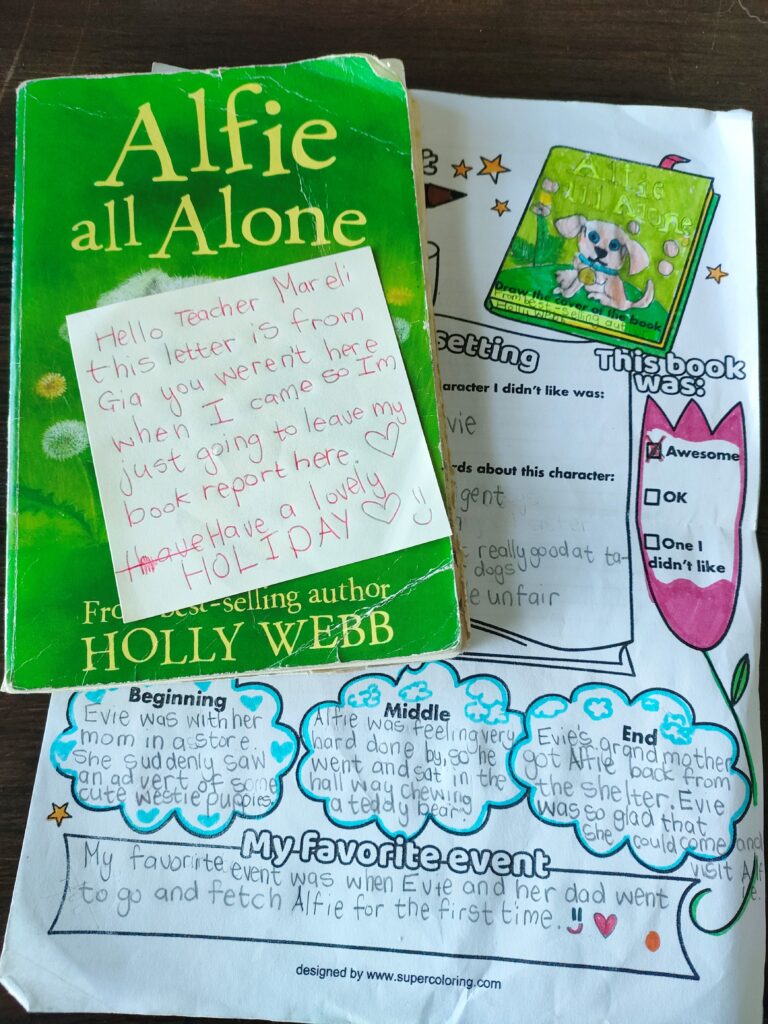 Alfie
all Alone
Hello Teacher Mareli
this letter is from
Gia you weren't here
when I came so Im
just going to leave my
book report here.
Have a lovely
HOLIDAY
best-selling author
HOLLY WEBB
Alfie
all Alone
Draw the cover of the book
From best-selling aut
Holly Webb
setting
This book
was:
Awesome
OK
One I
didn't like
aracter I didn't like was:
vie
rds about this character:
gent
really good at ta-
dogs
e unfair
Beginning
Evie was with her
mom in a store.
She suddenly saw
an advert of some
cute westie puppies.
Middle
Alfie was feeling very
hard done by, so he
went and sat in the
hall way chewing
a teddy bear.
End
Evie's grand mother
got Alfie back from
the shelter. Evie
was so glad that
she could come and
visit Alf
ie.
My favorite event
My favorite event was when Evie and her dad went
to go and fetch Alfie for the first time.
designed by www.supercoloring.com